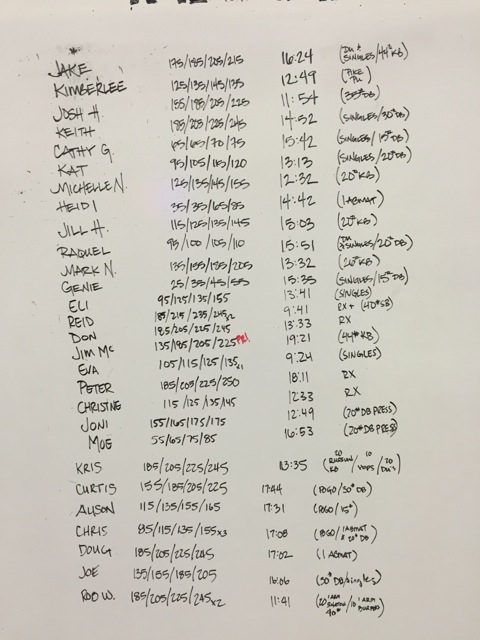 JAKE 175/185/205/215 16:24 (DU & SINGLES/44# KB)
KIMBERLEE 125/135/145/135 12:49 (PIKE PU)
JOSH H. 155/185/205/225 11:54 (35# DB)
KEITH 185/205/225/245 14:52 (SINGLES/30# DB)
CATHY G. 65/65/70/75 15:42 (SINGLES/15# DB)
KAT 95/105/115/120 13:13 (SINGLES/20# DB)
MICHELLE N. 125/135/145/155 12:32 (20# KB)
HEIDI 35/35/65/85 14:42 (1 ABMAT)
JILL H. 115/125/135/145 15:03 (20# KB)
RAQUEL 95/100/105/110 15:51 (DU & SINGLES/20# DB)
MARK N. 135/155/185/205 13:32 (26# KB)
GENIE 25/35/45/55 15:35 (SINGLES/15# DB)
ELI 95/125/135/155 13:41 (SINGLES)
REID 185/215/235/245x2 9:41 RX + (40# SB)
DON 185/205/225/245 13:33 RX
JIM MC 135/185/205/225 PR! 19:21 (44# KB)
EVA 105/115/125/135x1 9:24 (SINGLES)
PETER 185/205/225/250 18:11 RX
CHRISTINE 115/125/135/145 12:33 RX
JONI 155/165/175/175 12:49 (20# DB PRESS)
MOE 55/65/75/85 16:53 (20# DB PRESS)
KRIS 185/205/225/245 13:35 (20 RUSSIAN KB/10 VUPS/20 DU'S)
CURTIS 155/185/205/225 17:44 (POGO/30# DB)
ALISON 115/135/155/165 17:31 (POGO/15#)
CHRIS 85/115/135/155x3 17:08 (POGO/1 ABMAT & 20# DB)
DOUG 185/205/225/245 17:02 (1 ABMAT)
JOE 135/155/185/205 16:06 (30# DB/singles)
ROB W. 185/205/225/245x2 11:41 (20 1 ARM 40#/10 1 ARM)